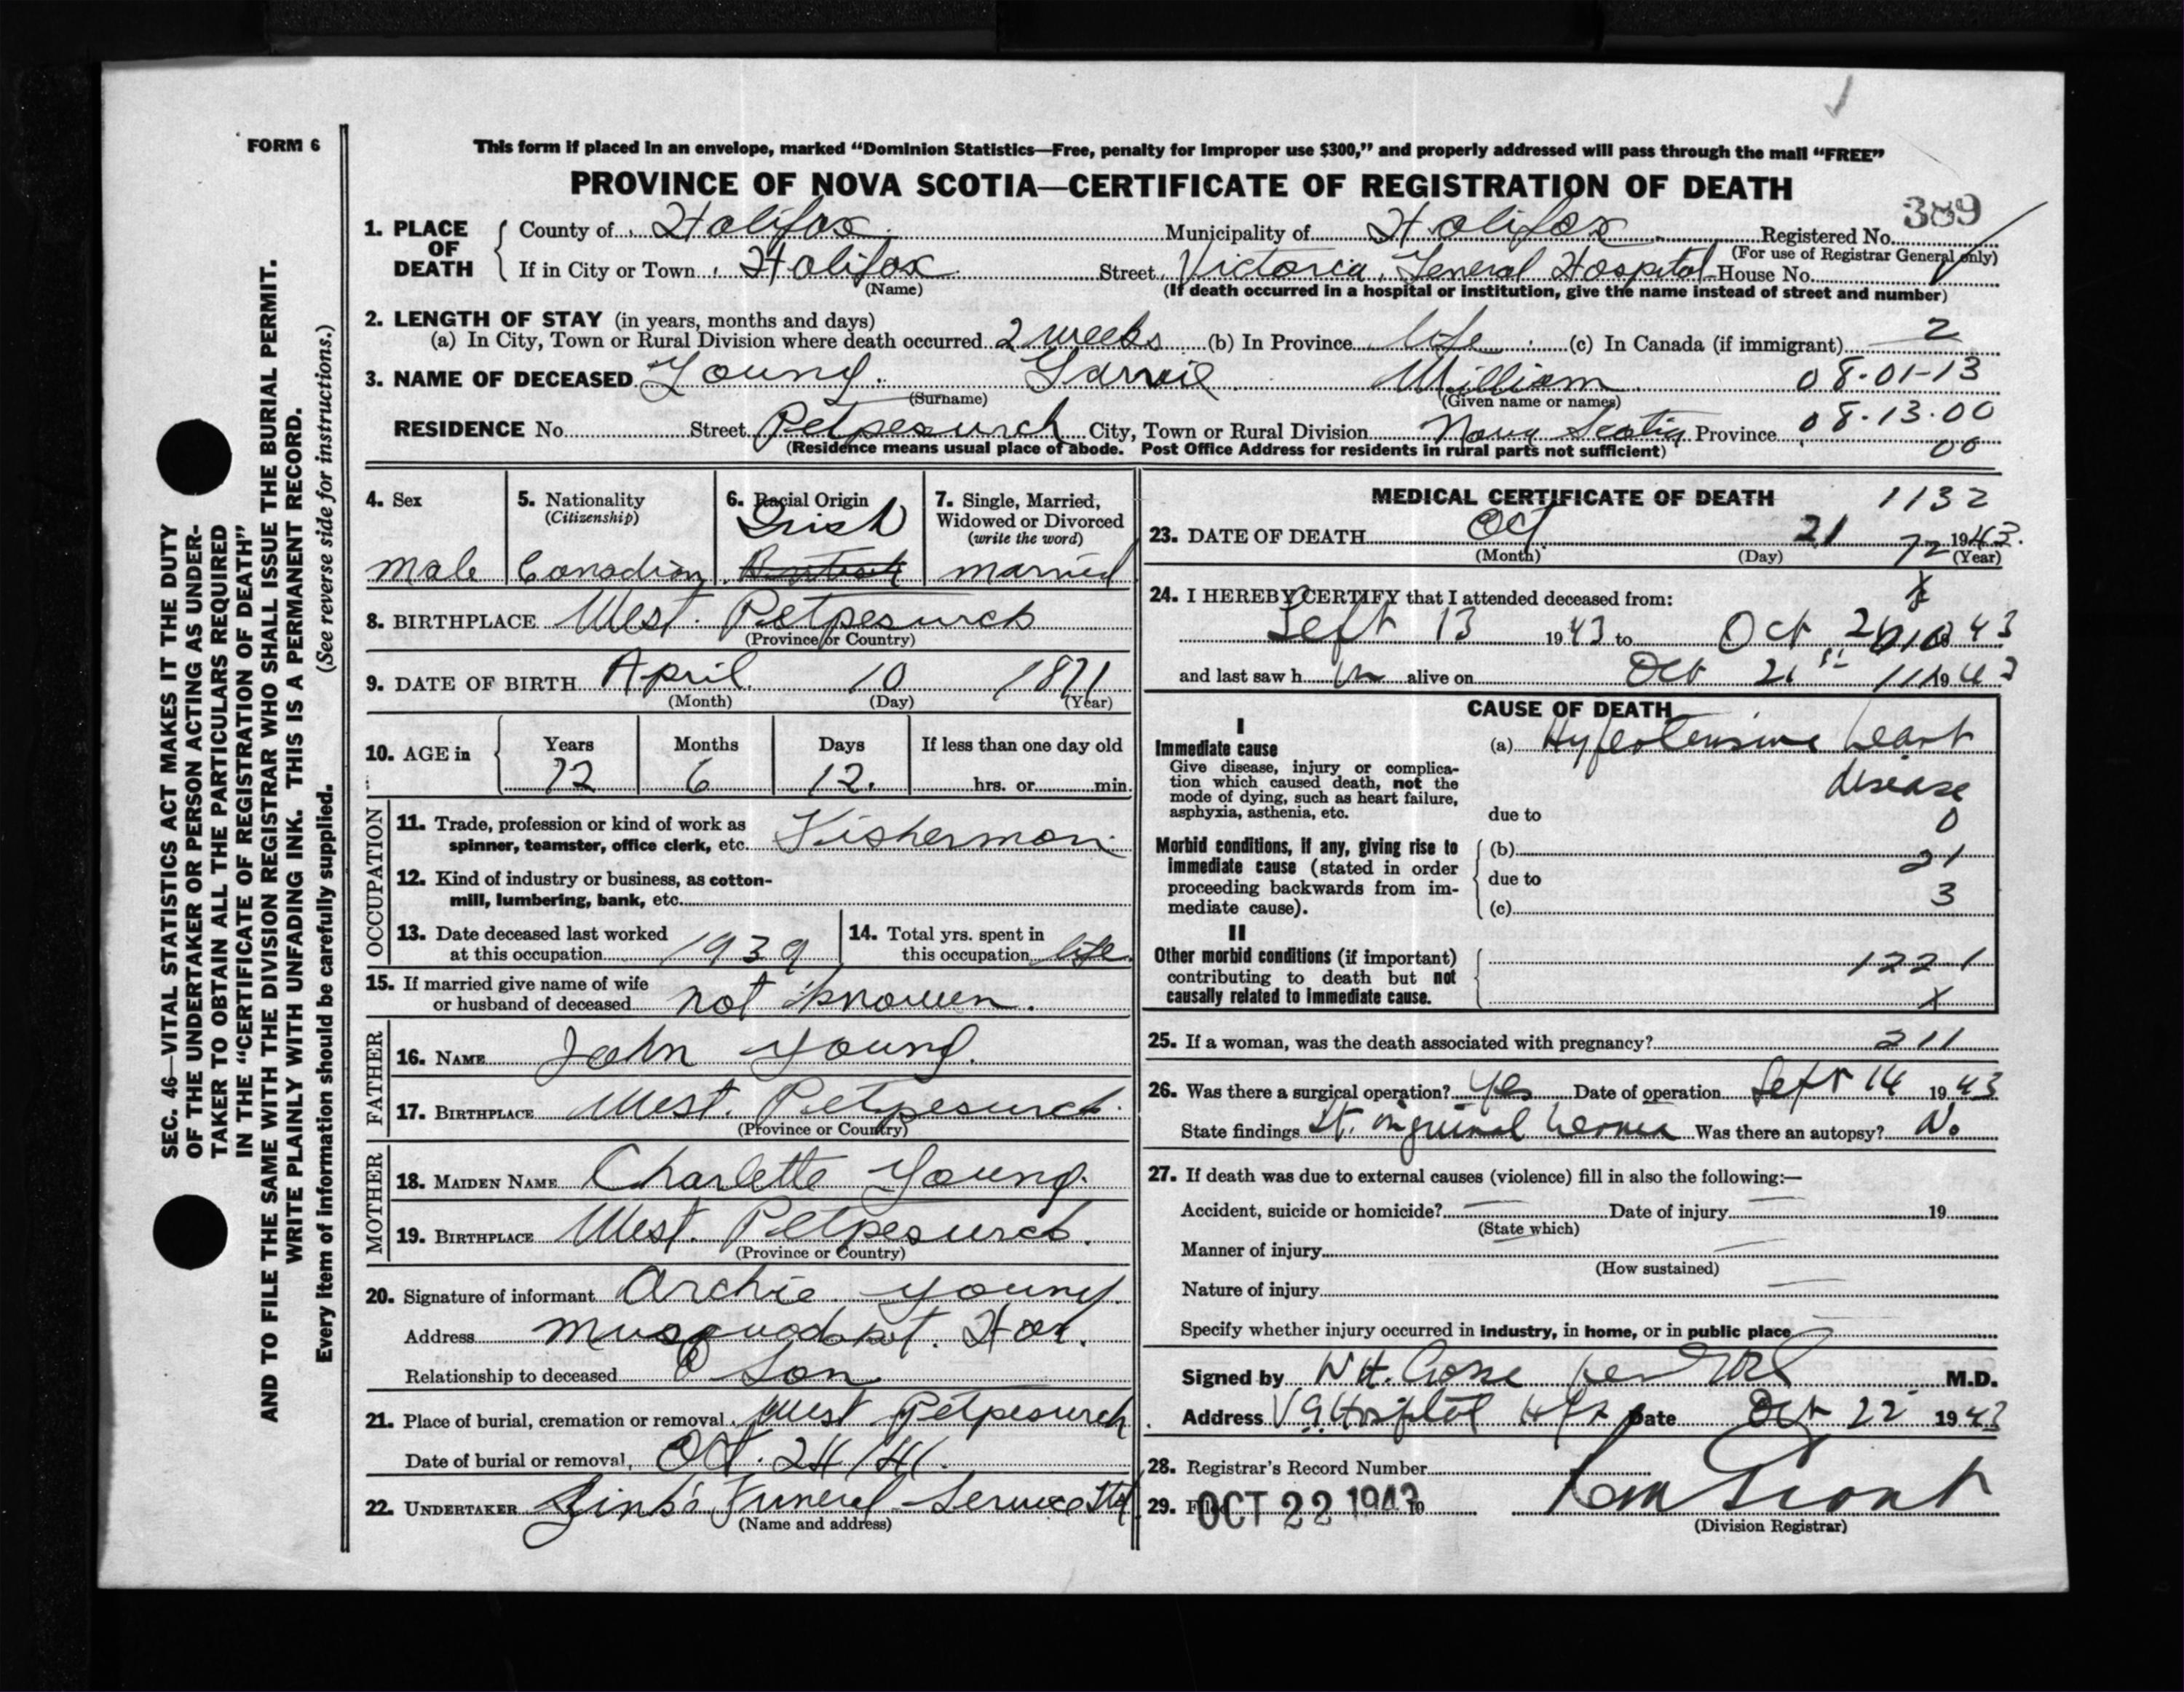 FORM 6
SEC. 46—VITAL STATISTICS ACT MAKES IT THE DUTY
OF THE UNDERTAKER OR PERSON ACTING AS UNDER-
TAKER TO OBTAIN ALL THE PARTICULARS REQUIRED
IN THE "CERTIFICATE OF REGISTRATION OF DEATH"
AND TO FILE THE SAME WITH THE DIVISION REGISTRAR WHO SHALL ISSUE THE BURIAL PERMIT.
WRITE PLAINLY WITH UNFADING INK. THIS IS A PERMANENT RECORD.
Every item of information should be carefully supplied. (See reverse side for instructions.)
This form if placed in an envelope, marked "Dominion Statistics—Free, penalty for improper use $300," and properly addressed will pass through the mail "FREE"
PROVINCE OF NOVA SCOTIA—CERTIFICATE OF REGISTRATION OF DEATH
389
1. PLACE OF DEATH County of Halifax Municipality of Halifax Registered No.
(For use of Registrar General only)
If in City or Town Halifax Street Victoria General Hospital House No.
(Name) (If death occurred in a hospital or institution, give the name instead of street and number)
2. LENGTH OF STAY (in years, months and days)
(a) In City, Town or Rural Division where death occurred 2 weeks (b) In Province life (c) In Canada (if immigrant) 2
3. NAME OF DECEASED Young Garvie William 08-01-13
(Surname) (Given name or names)
RESIDENCE No. Street Petpeswich City, Town or Rural Division Nova Scotia Province 08-13-00
(Residence means usual place of abode. Post Office Address for residents in rural parts not sufficient) 00
4. Sex male
5. Nationality (Citizenship) Canadian
6. Racial Origin Irish British
7. Single, Married, Widowed or Divorced (write the word) married
8. BIRTHPLACE West Petpeswick
(Province or Country)
9. DATE OF BIRTH April 10 1871
(Month) (Day) (Year)
10. AGE in Years 72 Months 6 Days 12. If less than one day old hrs. or min.
OCCUPATION
11. Trade, profession or kind of work as
spinner, teamster, office clerk, etc. Fisherman
12. Kind of industry or business, as cotton-
mill, lumbering, bank, etc.
13. Date deceased last worked
at this occupation 1939
14. Total yrs. spent in
this occupation life
15. If married give name of wife
or husband of deceased not known.
FATHER
16. NAME John Young.
17. BIRTHPLACE West. Petpeswick
(Province or Country)
MOTHER
18. MAIDEN NAME Charlette Young.
19. BIRTHPLACE West. Petpeswick.
(Province or Country)
20. Signature of informant Archie Young.
Address Musquodobit. Har.
Relationship to deceased Son
21. Place of burial, cremation or removal West Petpeswick
Date of burial or removal Oct. 24/41.
22. UNDERTAKER Funeral Service Ltd
(Name and address)
MEDICAL CERTIFICATE OF DEATH 1132
23. DATE OF DEATH Oct 21 1943.
(Month) (Day) (Year)
72
24. I HEREBY CERTIFY that I attended deceased from: X
Sept 13 1943 to Oct 43
and last saw h im alive on Oct 21st 1943
CAUSE OF DEATH
I
Immediate cause
Give disease, injury or complica-
tion which caused death, not the
mode of dying, such as heart failure,
asphyxia, asthenia, etc.
(a) Hypertensive heart
disease
due to 0
Morbid conditions, if any, giving rise to
immediate cause (stated in order
proceeding backwards from im-
mediate cause).
(b) 21
due to
(c) 3
II
Other morbid conditions (if important)
contributing to death but not
causally related to immediate cause.
1221
X
25. If a woman, was the death associated with pregnancy? 211
26. Was there a surgical operation? Yes Date of operation Sept 14 1943
State findings inguinal hernia Was there an autopsy? No
27. If death was due to external causes (violence) fill in also the following:—
Accident, suicide or homicide? Date of injury 19
(State which)
Manner of injury
(How sustained)
Nature of injury
Specify whether injury occurred in industry, in home, or in public place
Signed by M.D.
Address V G Hospital Hfx Date Oct 22 1943
28. Registrar's Record Number
29. Filed OCT 22 1943
(Division Registrar)